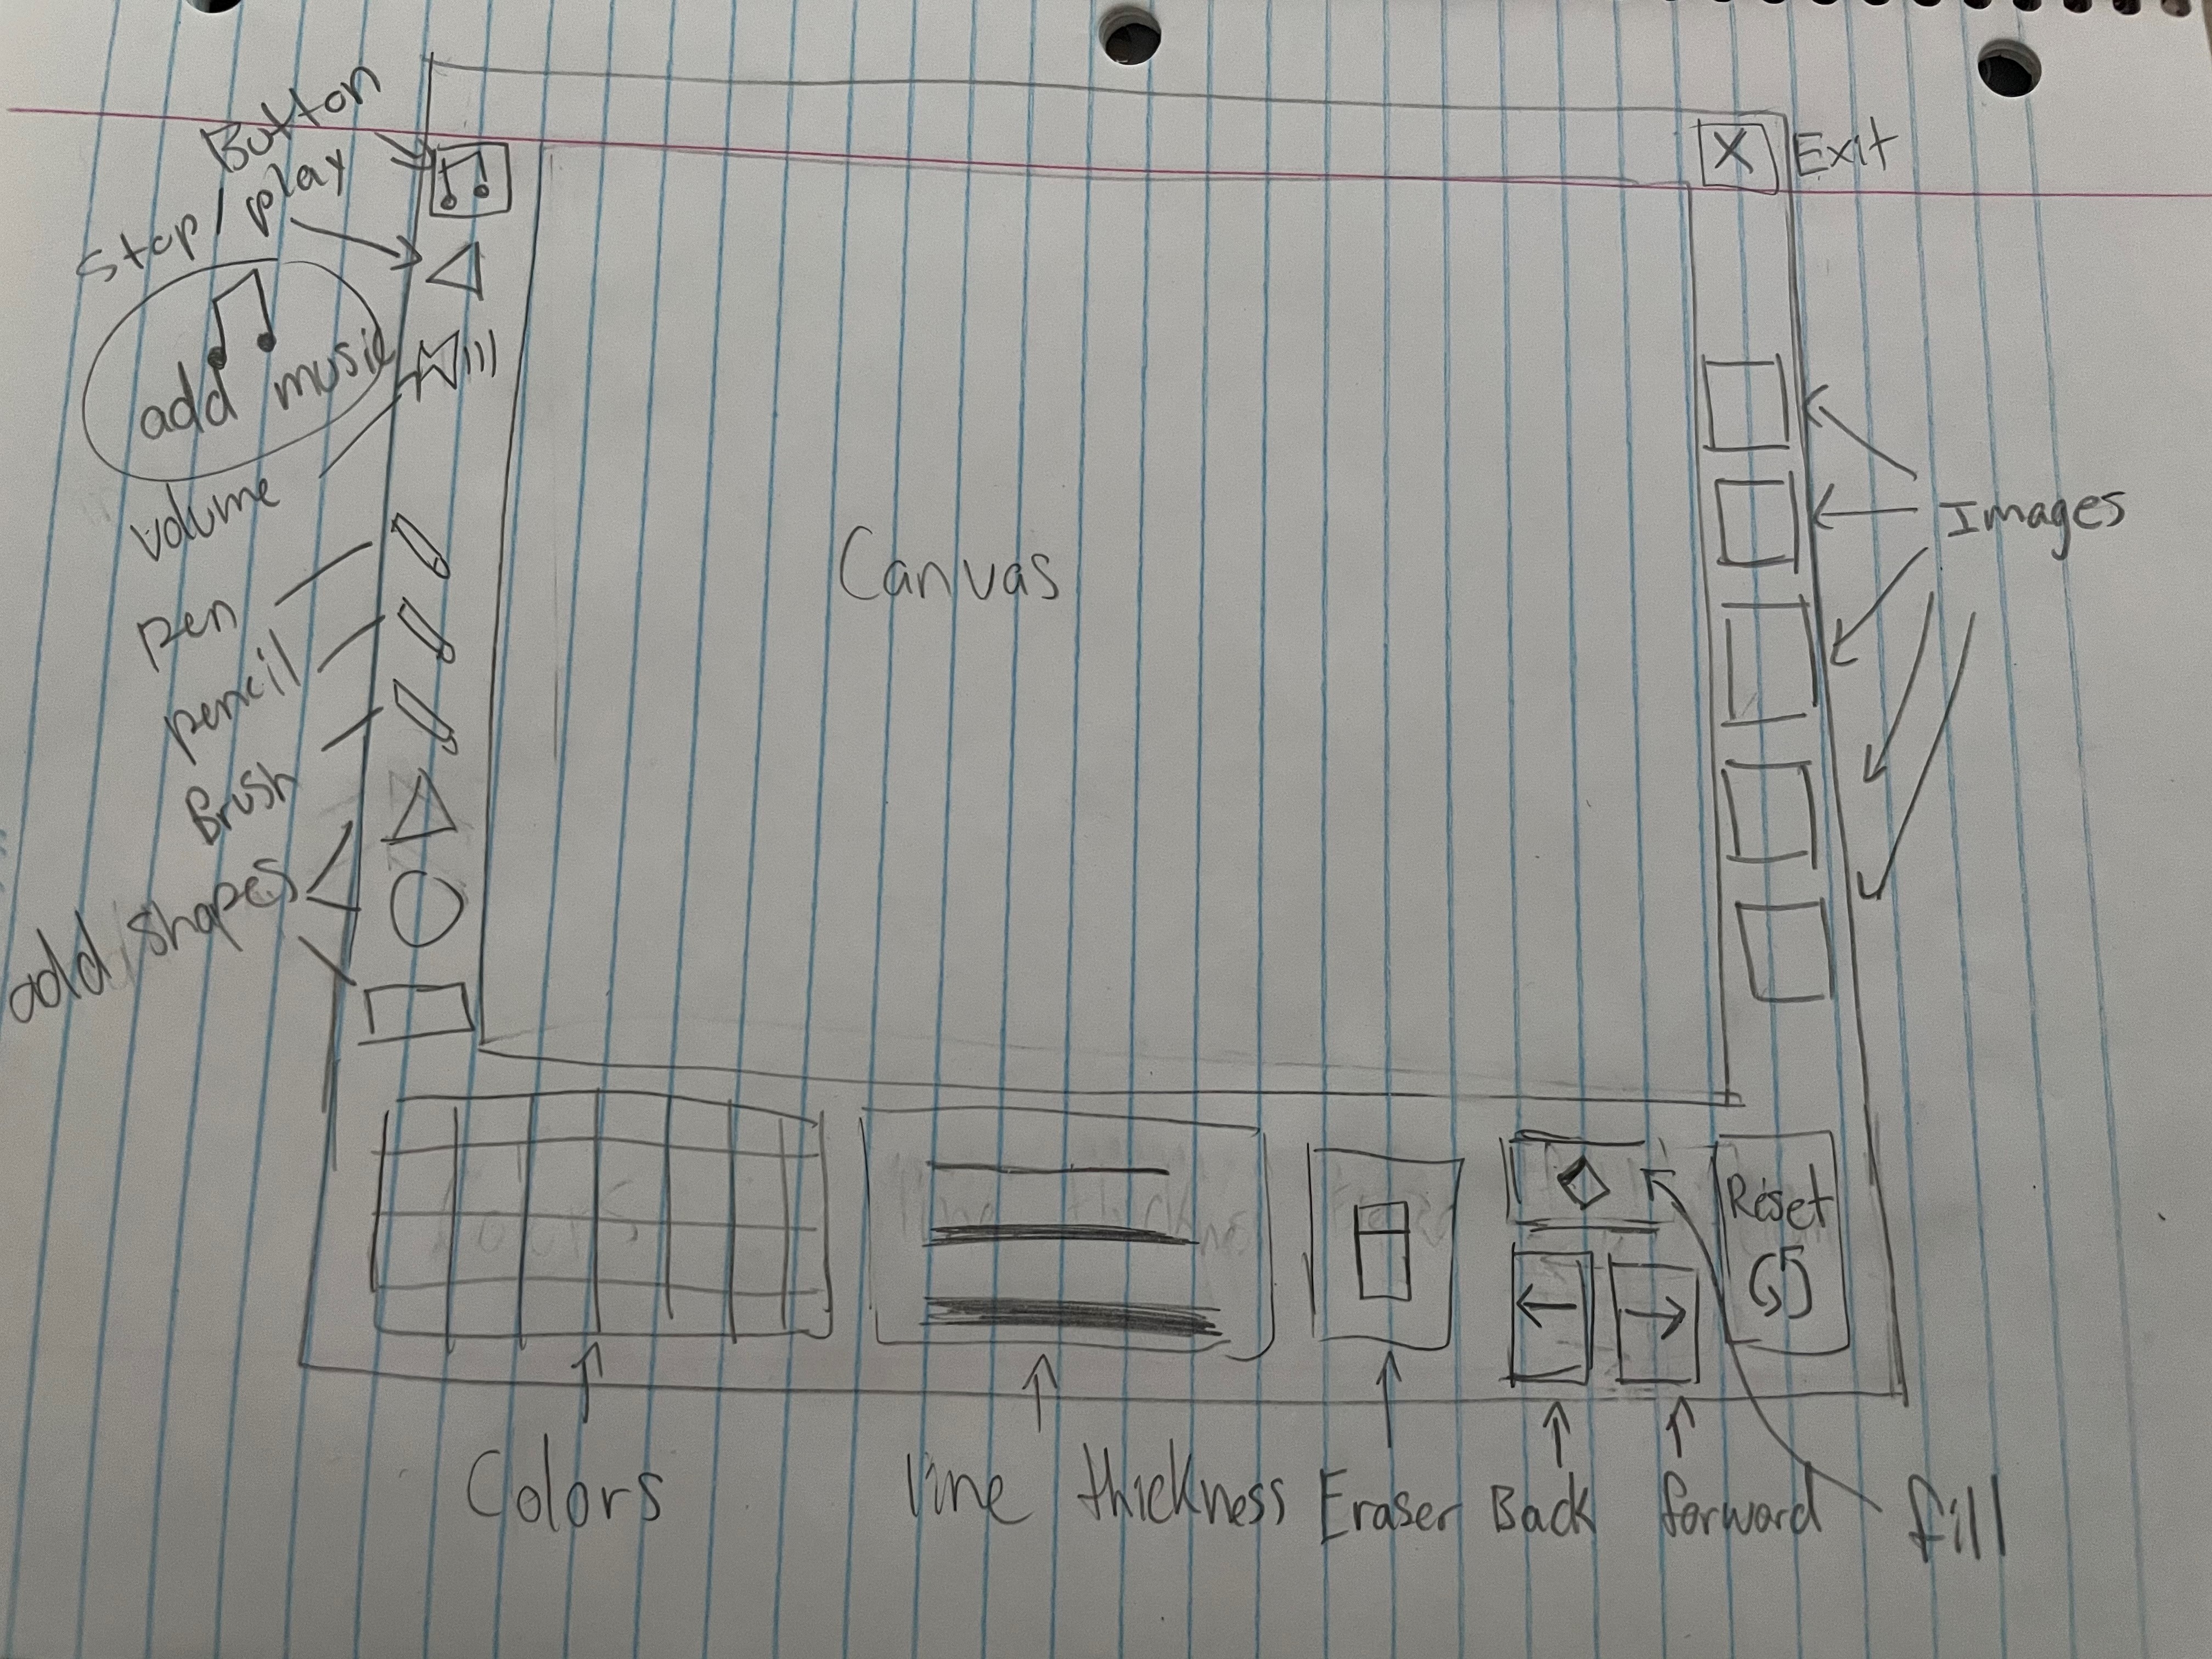 Button
stop/play
add music
volume
pen
pencil
Brush
add shapes
X
Exit
Canvas
Images
Reset
Colors
line thickness
Eraser
Back
forward
fill